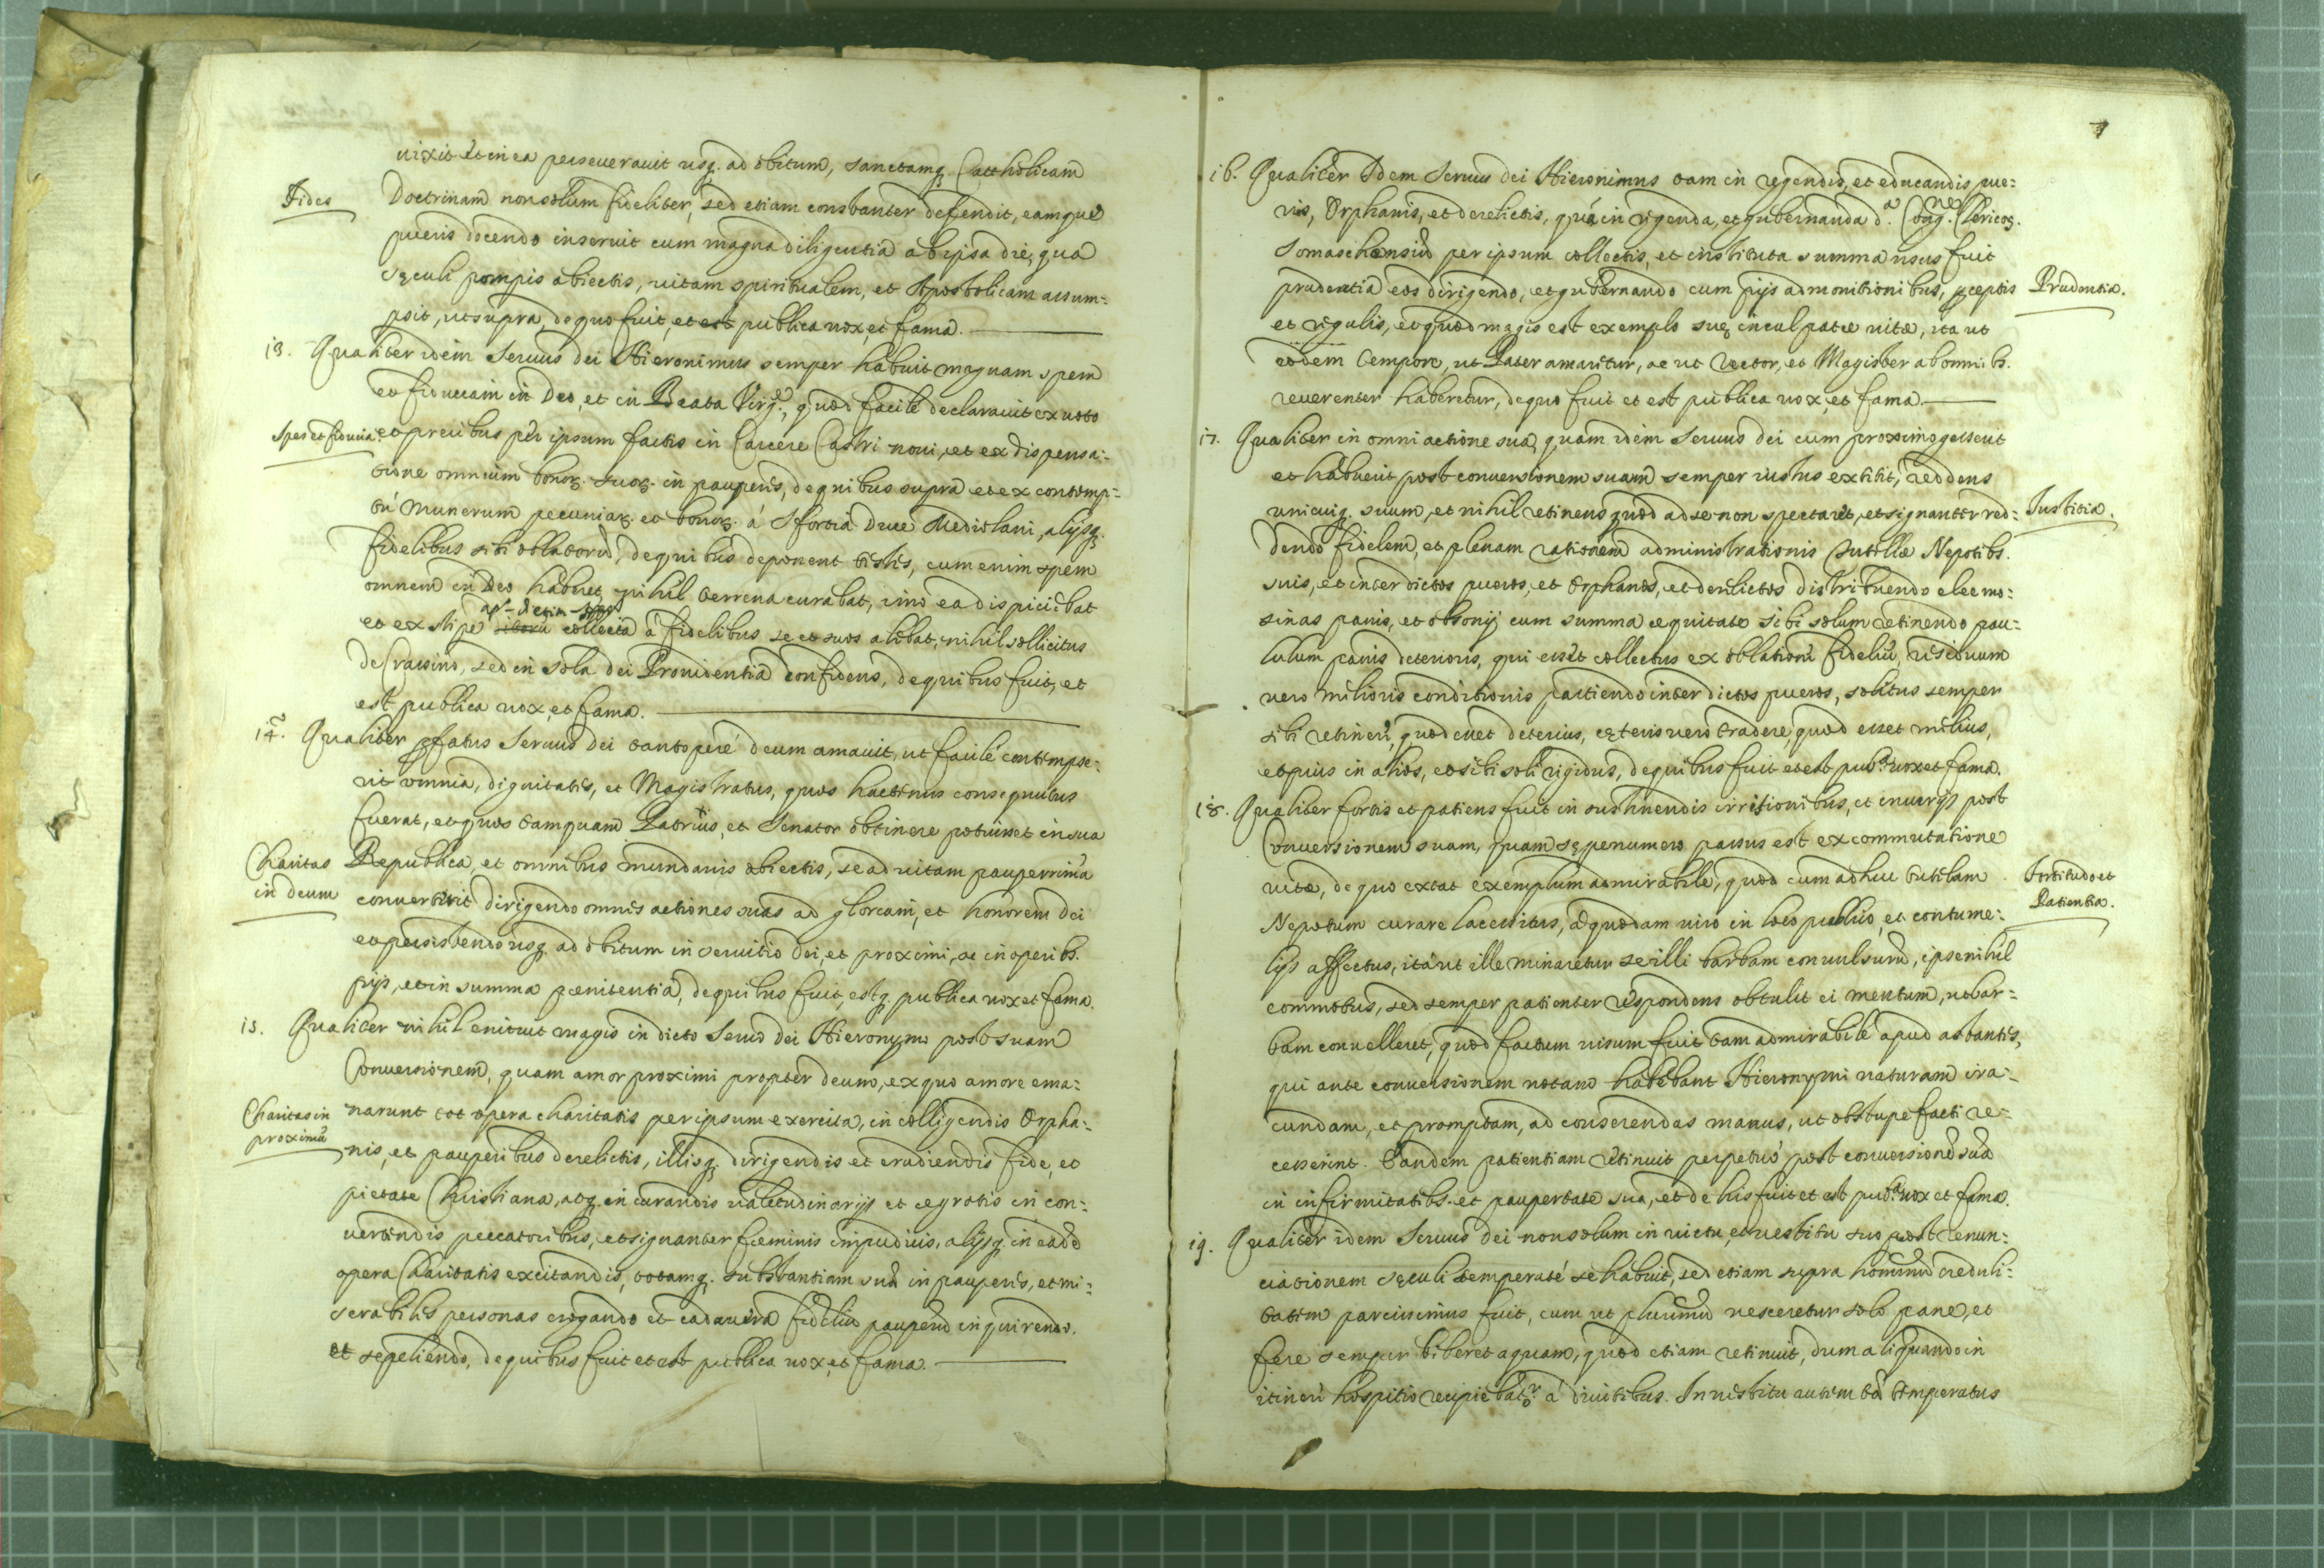 uixit et in ea perseuerauit usq. ad obitum, sanctamq. Catholicam
Fides
Doctrinam non solum fideliter, sed etiam constanter defendit, eamque
pueris docendo inseruit cum magna diligentia ab ipsa die, qua
sęculi pompis abiectis, uitam spiritualem, et Apostolicam assum=
psit, ut supra, de quo fuit, et est publica uox, et fama.
13. Qualiter idem Seruus dei Hieronimus semper habuit magnam spem
et fiduciam in Deo, et in Beata Virg.e, quod facile declarauit ex uoto
Spes et fiducia
et precibus per ipsum factis in Carcere Castri noui, et ex dispensa=
tione omnium bonor. suor. in pauperes, de quibus supra et ex contemp=
tu munerum pecuniar. et bonor. á Sfortia Duce Mediolani, alijsq.
fidelibus sibi oblatorũ, de quibus deponent testes, cum enim spem
omnem in Deo haberet, nihil terrena curabat, imò ea dispiciebat
et ex stipe collecta à fidelibus se et suos alebat, nihil sollicitus
de Crastino, sed in sola dei Prouidentia confidens, de quibus fuit, et
est publica uox, et fama.
14. Qualiter pfatus Seruus dei tantoperé deum amauit, ut facilé contempse=
rit omnia, dignitates, et Magistratus, quos hactenus consequutus
fuerat, et quos tamquam Patritius, et Senator obtinere potuisset in sua
Charitas
in deum
Republica, et omnibus mundanis abiectis, se ad uitam pauperrimã
conuertirit dirigendo omnes actiones suas ad gloriam, et honorem dei
et persistendo usq. ad obitum in seruitio dei, et proximi, ac in operibs.
pijs, et in summa pœnitentia, de quibus fuit, estq. publica uox et fama.
15. Qualiter nihil enituit magis in dicto Seruo dei Hieronymo post suam
Conuersionem, quam amor proximi propter deum, ex quo amore ema=
Charitas in
proximũ
narunt tot opera charitatis per ipsum exercita, in colligendis Orpha=
nis, et pauperibus derelictis, illisq. dirigendis et erudiendis fide, et
pietate Christiana, atq. in curandis ualetudinarijs et ægrotis in con=
uertendis peccatoribus, et signanter fœminis impudicis, alijsq. in eadẽ
opera Charitatis excitandis, totamq. substantiam suã in pauperes, et mi=
serabiles personas erogando et cadauera fideliũ pauperũ inquirendo.
et sepeliendo, de quibus fuit et est publica uox, et fama.
7
16. Qualiter Idem Seruus dei Hieronimus tam in regendis, et educandis pue=
ris, Orphanis, et derelictis, quá in rigenda, et gubernanda d.a Cong.ne Clericor.
Somaschensiũ per ipsum collectis, et instituta summa usus fuit
Prudentia.
prudentia eos dirigendo, et gubernando cum pijs admonitionibus, pceptis
et regulis, et quod magis est exemplo suę inculpatæ uitæ, ita ut
eodem tempore, ut Pater amaretur, ac ut Rector, et Magister ab omnibs.
reuerenter haberetur, de quo fuit et est publica uox, et fama.
17. Qualiter in omni actione sua, quam idem Seruus dei cum proximo gesserit
et habuerit post conuersionem suam semper iustus extitit, reddens
Iustitia.
unicuiq. suum, et nihil retinens quod ad se non spectaret, et signanter red=
dendo fidelem, et plenam rationem administrationis Tutellæ Nepotibs.
suis, et inter dictos pueros, et Orphanos, et derelictos distribuendo eleemo=
sinas panis, et obsonij cum summa æquitate sibi solum retinendo pau=
lulum panis deterioris, qui esset collectus ex oblatione fideliũ, residuum
uero melioris conditionis partiendo inter dictos pueros, solitus semper
sibi retinere, quod esset deterius, cęteris uero tradere, quod esset melius,
et pius in alios, et sibi soli rigidus, de quibus fuit et est pub.a uox et fama.
18. Qualiter fortis et patiens fuit in sustinendis irrisionibus, et iniurijs post
Conuersionem suam, quam sępenumero passus est ex commutatione
Fortitudo et
Patientia.
uitæ, de quo extat exemplum admirabile, quod cum adhuc tutelam
Nepotum curare lacessitus, à quodam uiro in loco publico, et contume=
lijs affectus, ita ut ille minaretur se illi barbam conuulsurũ, ipse nihil
commotus, sed semper patienter respondens obtulit ei mentum, ut bar=
bam conuelleret, quod factum uisum fuit tam admirabile apud astantes,
qui ante conuersionem notam habebant Hieronymi naturam ira=
cundam, et promptam, ad conserendas manus, ut obstupefacti re=
cesserint. Eandem patientiam retinuit perpetuò post conuersionẽ suã
in infirmitatibs. et paupertate sua, et de his fuit et est pub.a uox et fama.
19. Qualiter idem Seruus dei non solum in uictu, et uestitu suo post renun=
ciationem sęculi temperaté se habuit, sed etiam supra hominũ creduli=
tatem parcissimus fuit, cum ut plurimũ uesceretur solo pane, et
fere semper biberet aquam, quod etiam retinuit, dum aliquando in
itinere hospitio recipiebatr. á diuitibus. In uestitu autem ità temperatus